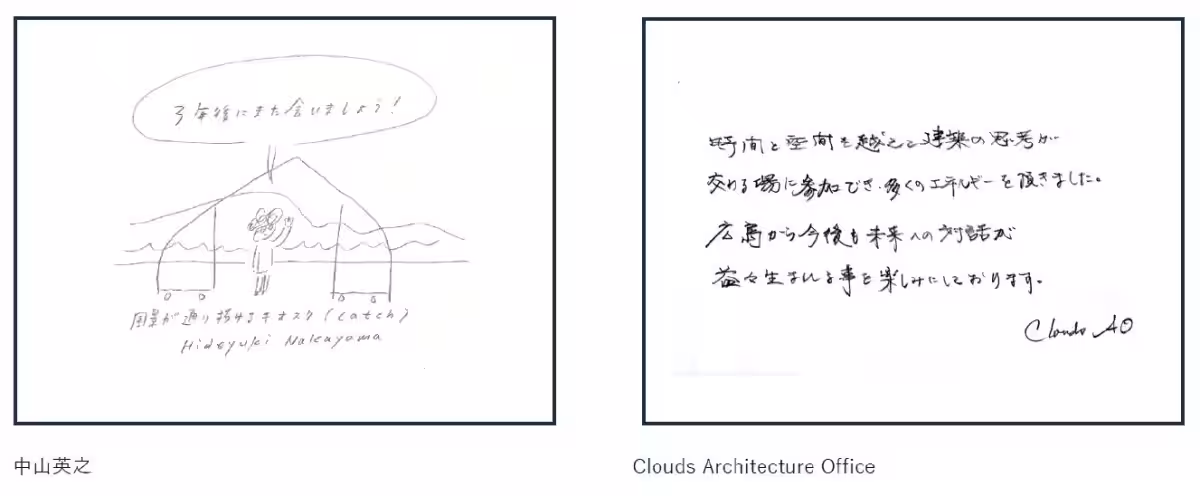 3年後にまた会いましょう!
風景が通り抜けるキオスク(catch)
Hideyuki Nakayama
中山英之
時間と空間を越えて建築の思考が
交わる場に参加でき、多くのエネルギーを頂きました。
広島から今後も未来への対話が
益々生まれる事を楽しみにしております。
Clouds AO
Clouds Architecture Office